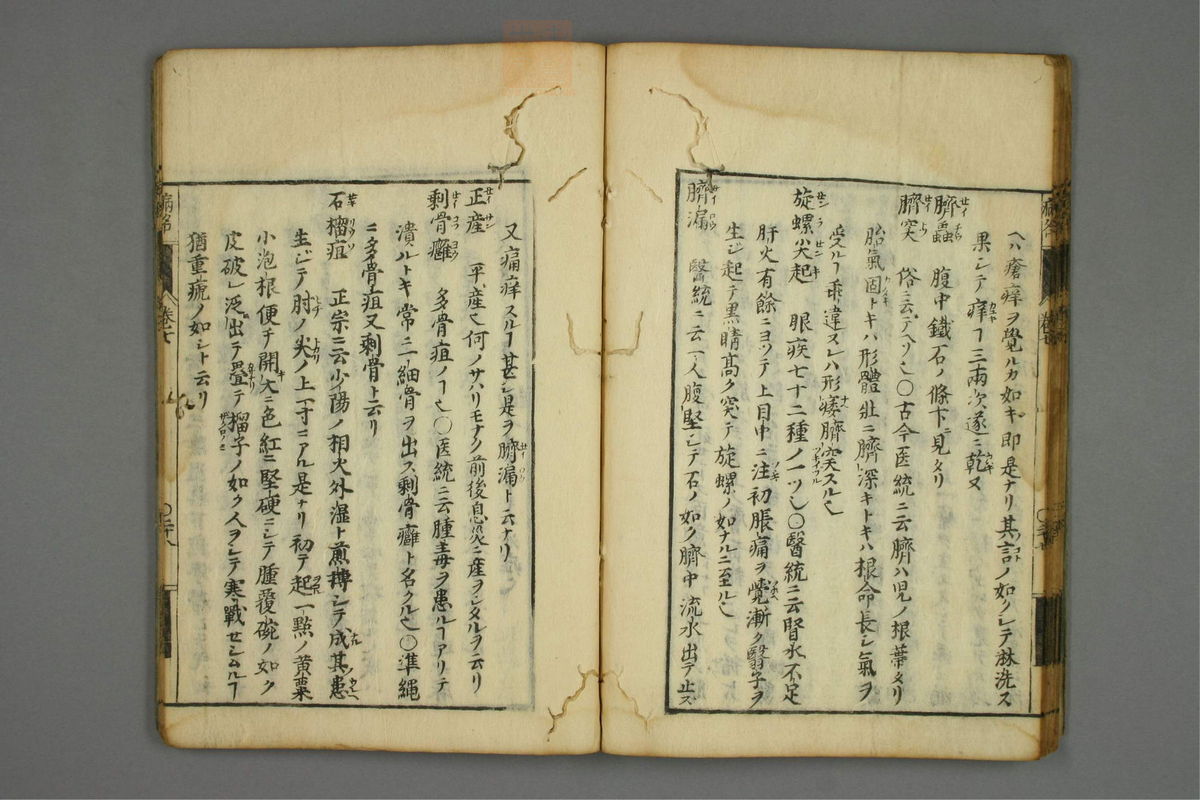 ヘハ瘡痒ヲ覺ルカ如キ即是ナリ其言ノ如クシテ淋洗ス
果シテ痒ヿ三兩次遂ニ乾又
臍蟲 腹中鐵石ノ條下ニ見タリ
臍突 俗ニ云デベソ也〇古今医統ニ云臍ハ児ノ根蔕タリ
胎氣固トキハ形體壮ニ臍深キトキハ根命長シ氣ヲ
受ルヿ乖違スレハ形痿臍突スル也
旋螺尖起 眼疾七十二種ノ一ツ也〇醫統ニ云腎水不足
肝火有餘ニヨツテ上目中ニ注初脹痛ヲ覺漸ク翳子ヲ
生ジ起テ黒睛髙ク突テ旋螺ノ如ナルニ至ル也
臍漏 醫統ニ云一人腹堅シテ石ノ如ク臍中流水出テ止ズ
又痛痒スルヿ甚シ是ヲ臍漏ト云ナリ
正産 平産也何ノサハリモナク前後息災ニ産ヲシタルヲ云リ
剩骨癰 多骨疽ノヿ也〇医統ニ云腫毒ヲ患ルヿアリテ
潰ルトキ常ニ一細骨ヲ出ス剩骨癰ト名クル也〇準縄
ニ多骨疽又剩骨ト云リ
石榴疽 正宗ニ云少陽ノ相火外湿ト煎搏シテ成其患
生ジテ肘ノ尖ノ上一寸ニアル是ナリ初テ起一點ノ黄粟
小泡根便チ開大ニ色紅ニ堅硬ニシテ腫覆碗ノ如ク
皮破レ泛出テ疊テ榴子ノ如ク人ヲシテ寒戰セシムルヿ
猶重瘧ノ如シト云リ
病名
巻七